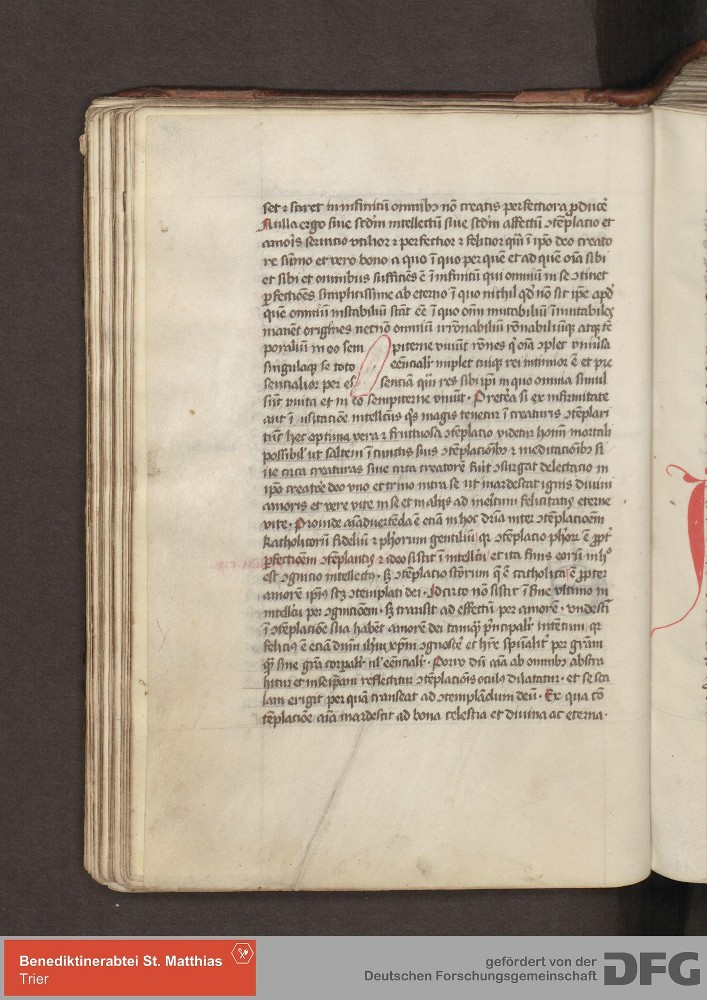 set et staret in infinitū omnibꝫ nō creatis perfectiora ꝓducē
Nulla ergo siue sed'm intellectū siue sed'm affectū ↄtēplatio et
amoris seruitio vtilior et perfectior et felicior quā ī ipō deo creato
re sūmo et vero bono a quo ī quo per quē et ad quē oīa sibi
et sibi et omnibus sufficiēs ē ī infinitū qui omniū in se ↄtinet
ꝑfectiōes simplicissime ab eterno ī quo nichil qd' nō sit ipē apd'
quē omniū instabiliū stāt cē ī quo oīm mutabiliū īmutabiles
manēt origines necnō omniū irrōnabiliū rōnabiliūqꝫ atqꝫ tē
poraliū in eo sem piterne viuūt rōnes q' oīa ↄplet vniūsa
singulaqꝫ se toto eēncialr' implet cuiqꝫ rei intimior ē et pre
sencialior per es senciā quā res sibi ip̄i in quo omnia simul
sūt vnita et in eo sempiterne viuūt. Pretēa si ex infirmitate
aut ī vsitaciōe intellcūs q's magis tenetur ī creaturis ↄtēplari
tn̄ hec optima vera et fructuosa ↄtēplacio videtur homī mortali
possibil' ut saltem ī cunctis suis ↄtēplaciōibꝫ et meditaciōibꝫ si
ue circa creaturas siue circa creatorē fiūt ↄsurgat delectacio in
ipō creatore deo vno et trino intra se ut inardescat ignis diuini
amoris et vere vite in se et in alijs ad inicium felicitatis eterne
vite. Proinde aīaduertēda ē eciā in hoc dr̄ia inter ↄtēplacioēm
katholicorū fideliū et ph'orum gentiliū qꝛ ↄtēplacio ph'orꝝ ē ꝓpt'
ꝑfectioēm ↄtēplantis et ideo sistit ī intellcū et ita finis eorū in h°
est ↄgnitio intellectꝰ. Sꝫ ↄtēplatio sc̄torum q' ē catholica ē ꝓpter
amorē ip̄ius scꝫ ↄtemplati dei. Idcirco nō sistit ī fine vltimo in
intellcū per ↄgnicioēm. Sꝫ transit ad effectū per amorē. vnde sc̄ti
ī ↄtēplaciōe sua habēt amorē dei tamqꝫ p'ncipalr' intētum qꝛ
felicius ē eciā dn̄m ih'm xp̄m ↄgnoscē et h'rē spūalit' per gr̄am
qꝫ sine gr̄a corpalr' ul' eēncialr'. Porro dū aīa ab omnibꝫ abstra
hitur et in seipam reflectitur ↄtēplaciōis oculus dilatatur. et se sca
lam erigit per quā transeat ad ↄtemplādum deū. Ex qua cō
tēplaciōe aīa inardescit ad bona celestia et diuina ac eterna.
Benediktinerabtei St. Matthias
Trier
gefördert von der
Deutschen Forschungsgemeinschaft
DFG